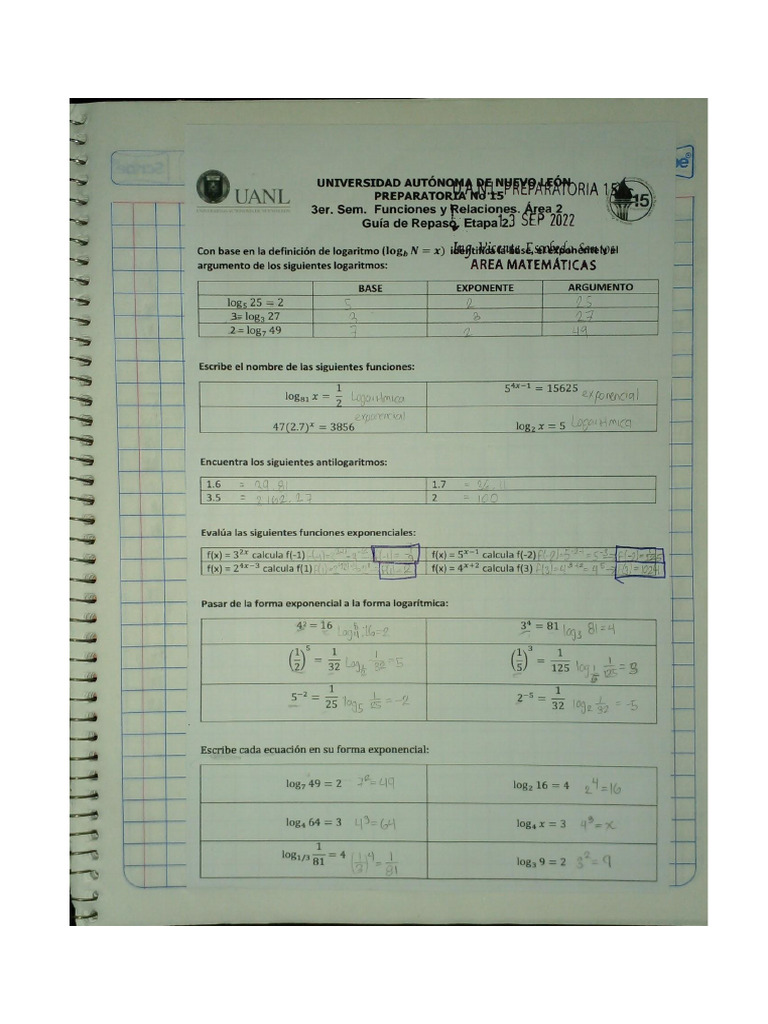 UANL
UNIVERSIDAD AUTÓNOMA DE NUEVO LEÓN
PREPARATORIA No 15
U.A.N.L. PREPARATORIA 15
3er. Sem. Funciones y Relaciones. Área 2
Guía de Repaso, Etapa 2
13 SEP 2022
15
Con base en la definición de logaritmo (log_b N = x) identifica la base, el exponente y el
argumento de los siguientes logaritmos:
AREA MATEMÁTICAS
BASE EXPONENTE ARGUMENTO
log₅ 25 = 2 5 2 25
3= log₃ 27 3 3 27
2 = log₇ 49 7 2 49
Escribe el nombre de las siguientes funciones:
log₈₁ x = 1/2 Logaritmica 5^(4x−1) = 15625 exponencial
47(2.7)^x = 3856 exponencial log₂ x = 5 Logaritmica
Encuentra los siguientes antilogaritmos:
1.6 = 39.81 1.7 =
3.5 = 3162.27 2 = 100
Evalúa las siguientes funciones exponenciales:
f(x) = 3^(2x) calcula f(-1) f(x) = 5^(x−1) calcula f(-2)
f(x) = 2^(4x−3) calcula f(1) f(x) = 4^(x+2) calcula f(3)
Pasar de la forma exponencial a la forma logarítmica:
4² = 16 3⁴ = 81 log₃ 81=4
(1/2)⁵ = 1/32 (1/5)³ = 1/125
5⁻² = 1/25 log₅ 1/125 = -2 2⁻⁵ = 1/32 log₂ 1/32 = -5
Escribe cada ecuación en su forma exponencial:
log₇ 49 = 2 7²=49 log₂ 16 = 4 2⁴=16
log₄ 64 = 3 4³=64 log₄ x = 3 4³=x
log₁/₃ 1/81 = 4 (1/3)⁴ = 1/81 log₃ 9 = 2 3²=9